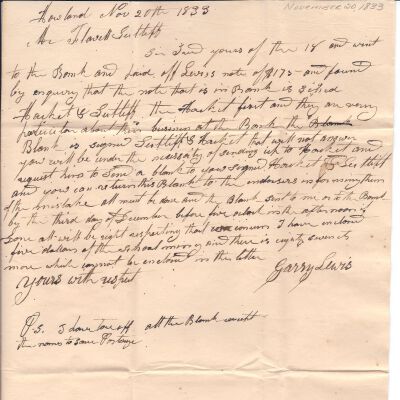 November 20, 1833
Howland Nov 20th 1833
Mr Flavell Sutliff
Sir I rd yours of the 18 and went
to the Bank and paid off Lewis note of $175 - and found
by enquiry that the note that is in Bank is signed
Harket & Sutliff, the Harket first and they are very
particular about their business at the Bank the
Blank is signed Sutliff & Harket that will not answer
you will be under the necessity of sending it to Harket and
request him to send a blank to you signed Harket & Sutliff
and you can return this Blank to the endorsers informing them
of the mistake all must be done and the Blank sent to me or to the Bank
by the third day of December before five oclock in the afternoon if
done all will be right respecting that concern I have enclosed
five dollars of the school money and there is eighty seven cts
more which cannot be enclosed in this letter
Yours with respect
Garry Lewis
P.S. I have tore off all the Blank except
the names to save Postage